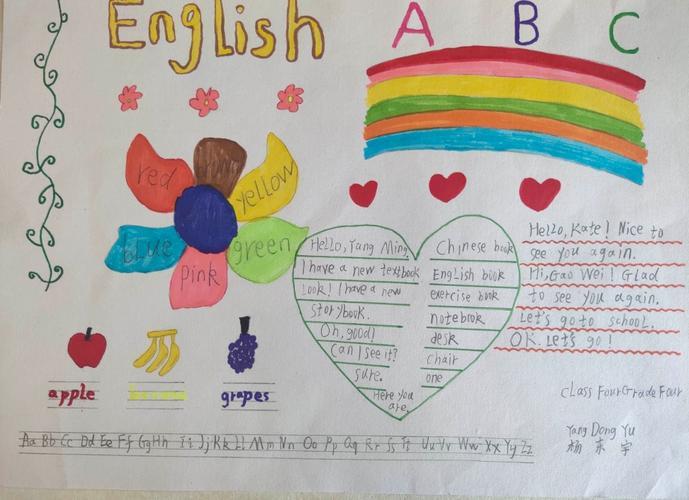 English
A B C
red
yellow
BLUE
green
pink
Hello, Yang Ming,
I have a new textbook
Look! I have a new
storybook.
Oh, good!
Can I see it?
sure.
Here you
are.
Chinese book
English book
exercise book
notebook
desk
chair
one
Hello, Kate! Nice to
see you again.
Hi, Gao Wei! Glad
to see you again.
Let's go to school.
OK. Let's go!
apple
banana
grapes
class Four Grade Four
Yang Dong Yu
杨东宇
Aa Bb Cc Dd Ee Ff Gg Hh Ii Jj Kk Ll Mm Nn Oo Pp Qq Rr Ss Tt Uu Vv Ww Xx Yy Zz